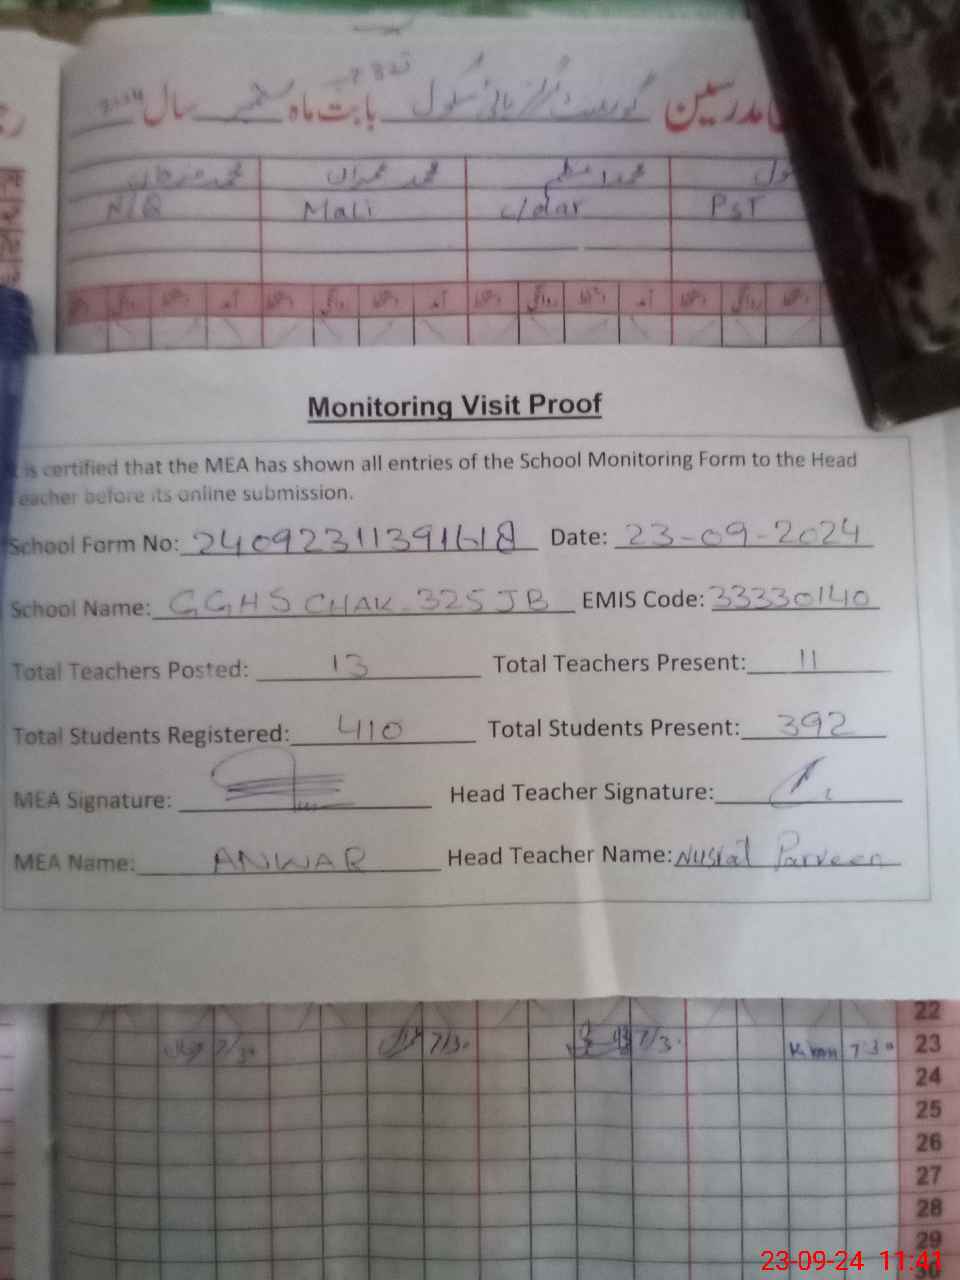 مدرسین گورنمنٹ گرلز ہائی سکول بابت ماہ ستمبر سال 2024
محمد عمران
N/Q Mali c/dar PST
Monitoring Visit Proof
is certified that the MEA has shown all entries of the School Monitoring Form to the Head
eacher before its online submission.
School Form No: 24092311391618 Date: 23-09-2024
School Name: GGHS CHAK-325 JB EMIS Code: 33330140
Total Teachers Posted: 13 Total Teachers Present: 11
Total Students Registered: 410 Total Students Present: 392
MEA Signature: Head Teacher Signature:
MEA Name: ANWAR Head Teacher Name: Nusrat Parveen
22
7/30 7/30 7/30 7:30 23
24
25
26
27
28
29
30
23-09-24 11:41